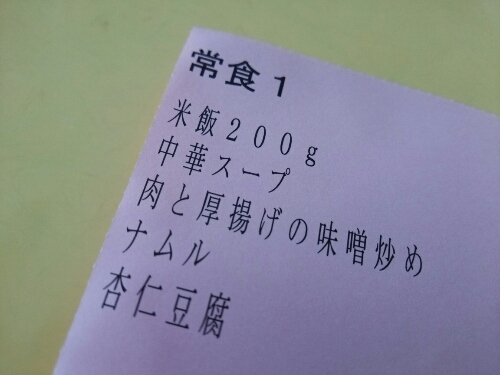 常食1
米飯200g
中華スープ
肉と厚揚げの味噌炒め
ナムル
杏仁豆腐